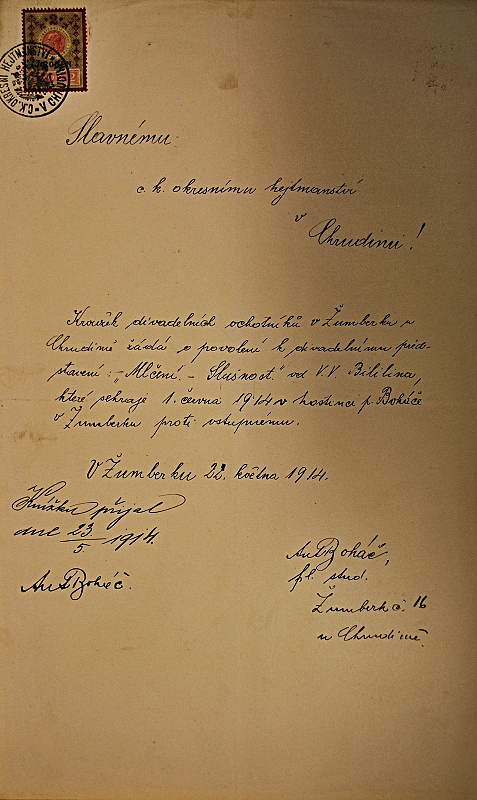 2
C.K. OKRESNÍ HEJTMANSTVÍ V
Slavnému
c. k. okresnímu hejtmanství
v
Chrudimi!
Kroužek divadelních ochotníků v Žumberku u
Chrudimě žádá o povolení k divadelnímu před-
stavení: „Mlčení. - Slušnost." od VV
které sehraje 1. června 1914 v hostinci p. Boháče
v Žumberku proti vstupnému.
V Žumberku 22. května 1914.
Knížku přijal
dne 23/5 1914.
Ant Boháč.
Ant Boháč,
fil. stud.
Žumberk č. 16
u Chrudimě.